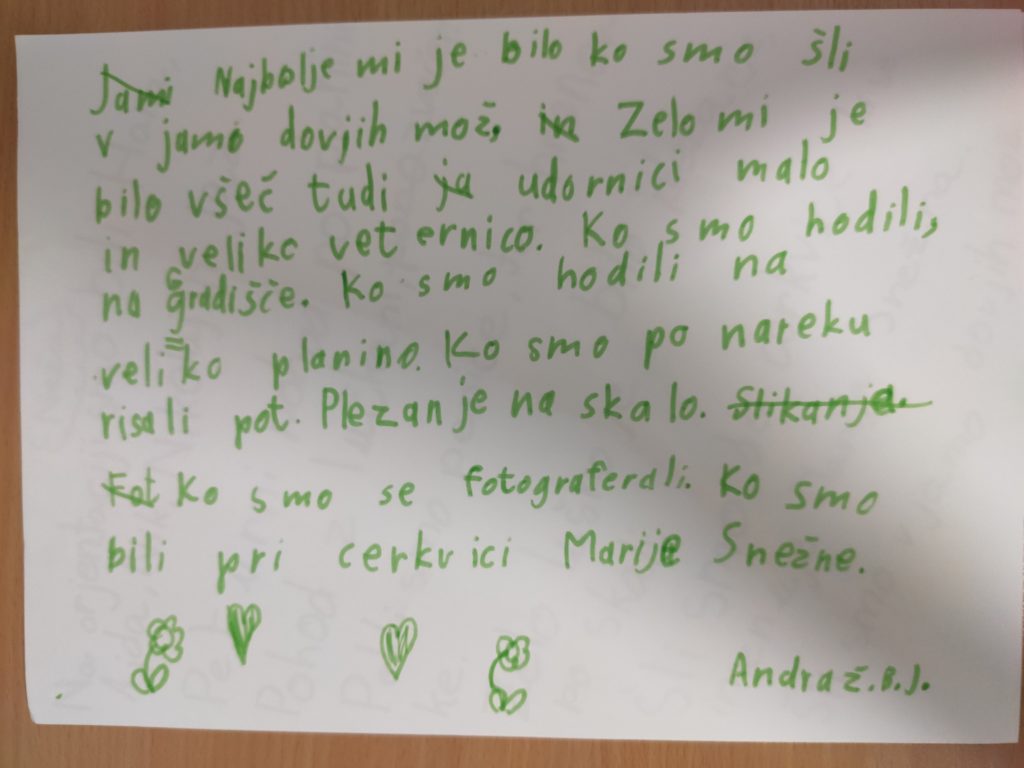 Jami Najbolje mi je bilo ko smo šli
v jamo dovjih mož, in Zelo mi je
bilo všeč tudi ja udornici malo
in veliko vet ernico. Ko smo hodili,
na gradišče. Ko smo hodili na
veliko planino. Ko smo po nareku
risali pot. Plezanje na skalo. Slikanja.
Fot Ko smo se fotograferali. Ko smo
bili pri cerkvici Marije Snežne.
Andraž.B.J.